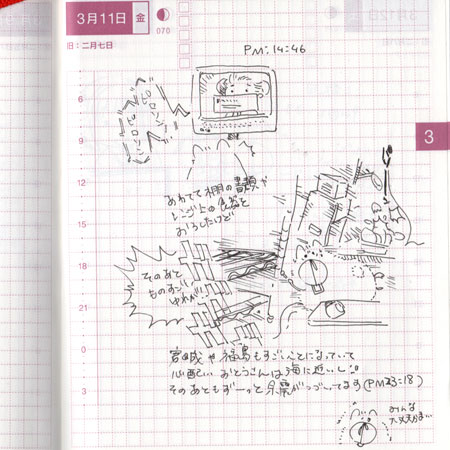 3月11日 金
070
旧：二月七日
PM:14:46
3
6
9
12
15
18
21
0
3
あわてて棚の書類や
レンジ上の食器を
おろしたけど
そのあと
ものすごい
ゆれが!!
宮城や福島もすごいことになっていて
心配… おとうさんは海に近いし
そのあともずーっと余震がつづいてます(PM23:18)
みんな
大丈夫かい